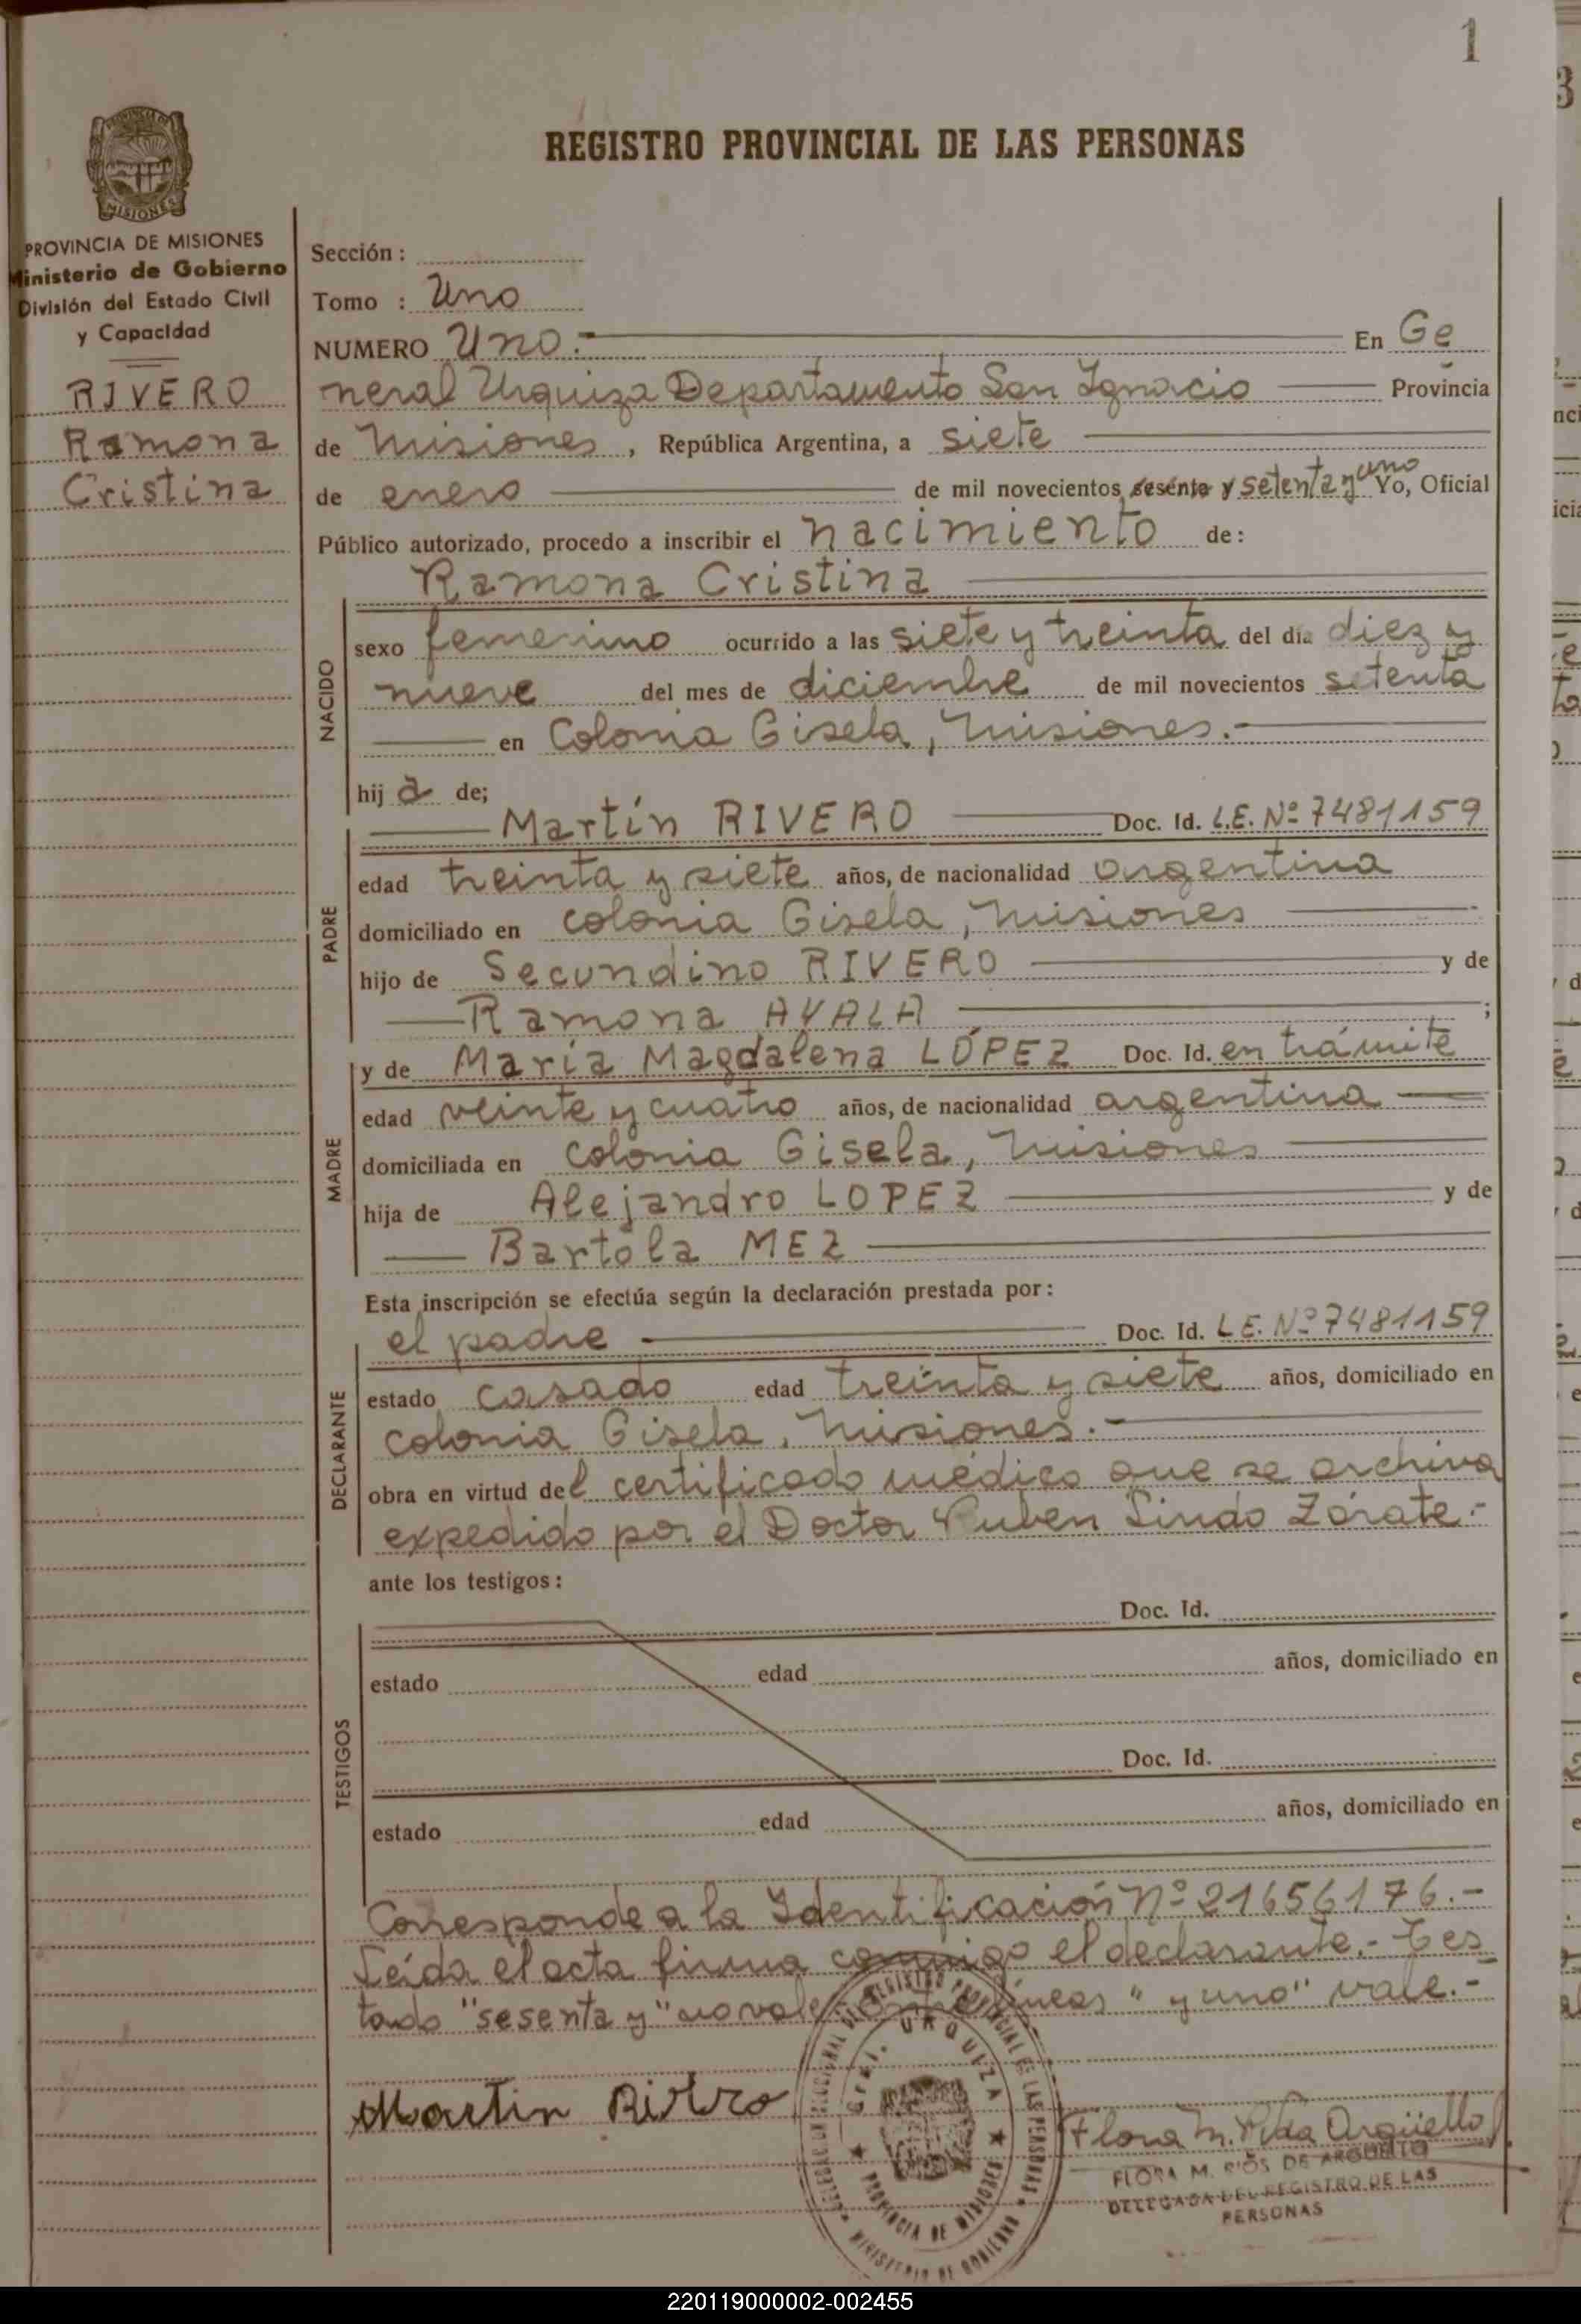 1
REGISTRO PROVINCIAL DE LAS PERSONAS
PROVINCIA DE MISIONES
Ministerio de Gobierno
División del Estado Civil
y Capacidad
RIVERO
Ramona
Cristina
Sección :
Tomo : Uno
NUMERO Uno.- En Ge
neral Urquiza Departamento San Ignacio Provincia
de Misiones, República Argentina, a siete
de enero de mil novecientos sesenta y setenta y uno Yo, Oficial
Público autorizado, procedo a inscribir el nacimiento de:
Ramona Cristina
NACIDO
sexo femenino ocurrido a las siete y treinta del día diez y
nueve del mes de diciembre de mil novecientos setenta
en Colonia Gisela, Misiones.-
hij a de;
PADRE
Martín RIVERO Doc. Id. L.E. Nº 7481159
edad treinta y siete años, de nacionalidad argentina
domiciliado en colonia Gisela, Misiones
hijo de Secundino RIVERO y de
Ramona AYALA ;
MADRE
y de María Magdalena LÓPEZ Doc. Id. en trámite
edad veinte y cuatro años, de nacionalidad argentina
domiciliada en colonia Gisela, Misiones
hija de Alejandro LOPEZ y de
Bartola MEZ
Esta inscripción se efectúa según la declaración prestada por:
DECLARANTE
el padre Doc. Id. L.E. Nº 7481159
estado casado edad treinta y siete años, domiciliado en
colonia Gisela, Misiones.-
obra en virtud del certificado médico que se archiva
expedido por el Doctor Ruben Lindo Zárate.-
ante los testigos:
TESTIGOS
Doc. Id.
estado edad años, domiciliado en
Doc. Id.
estado edad años, domiciliado en
Corresponde a la Identificación Nº 21656176.-
Leída el acta firma conmigo el declarante.- Tes
tado "sesenta y" no vale. Entre líneas "y uno" vale.-
Martin Rivero
GRAL. URQUIZA
PROVINCIA DE MISIONES
MINISTERIO DE GOBIERNO
Flora M. Argüello
FLORA M. RIOS DE ARGUELLO
DELEGADA DEL REGISTRO DE LAS
PERSONAS
220119000002-002455